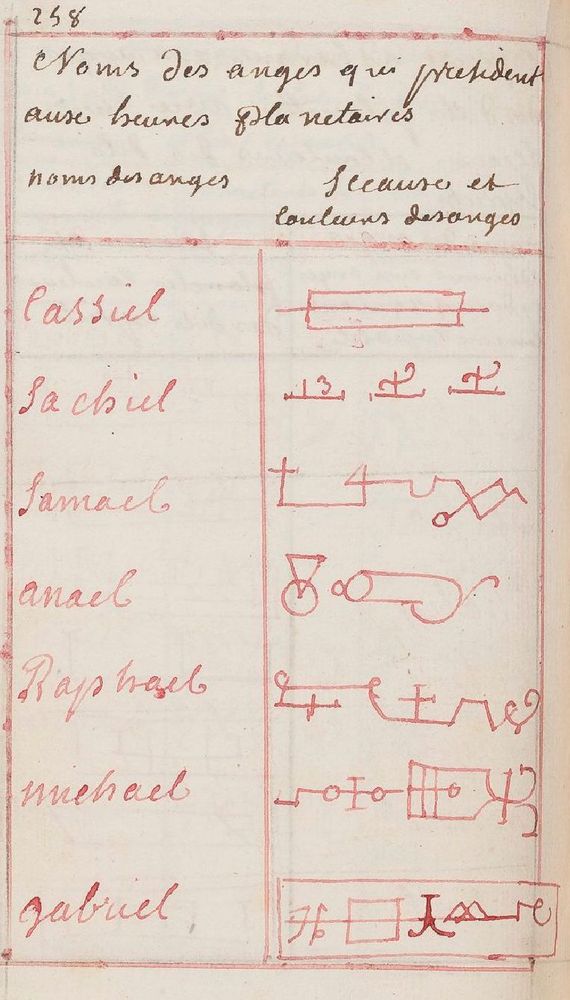 258
Noms des anges qui president
auxe heures planetaires
noms des anges
Sceauxe et
couleurs des anges
Cassiel
Sachiel
Samael
anael
Raphael
michael
gabriel